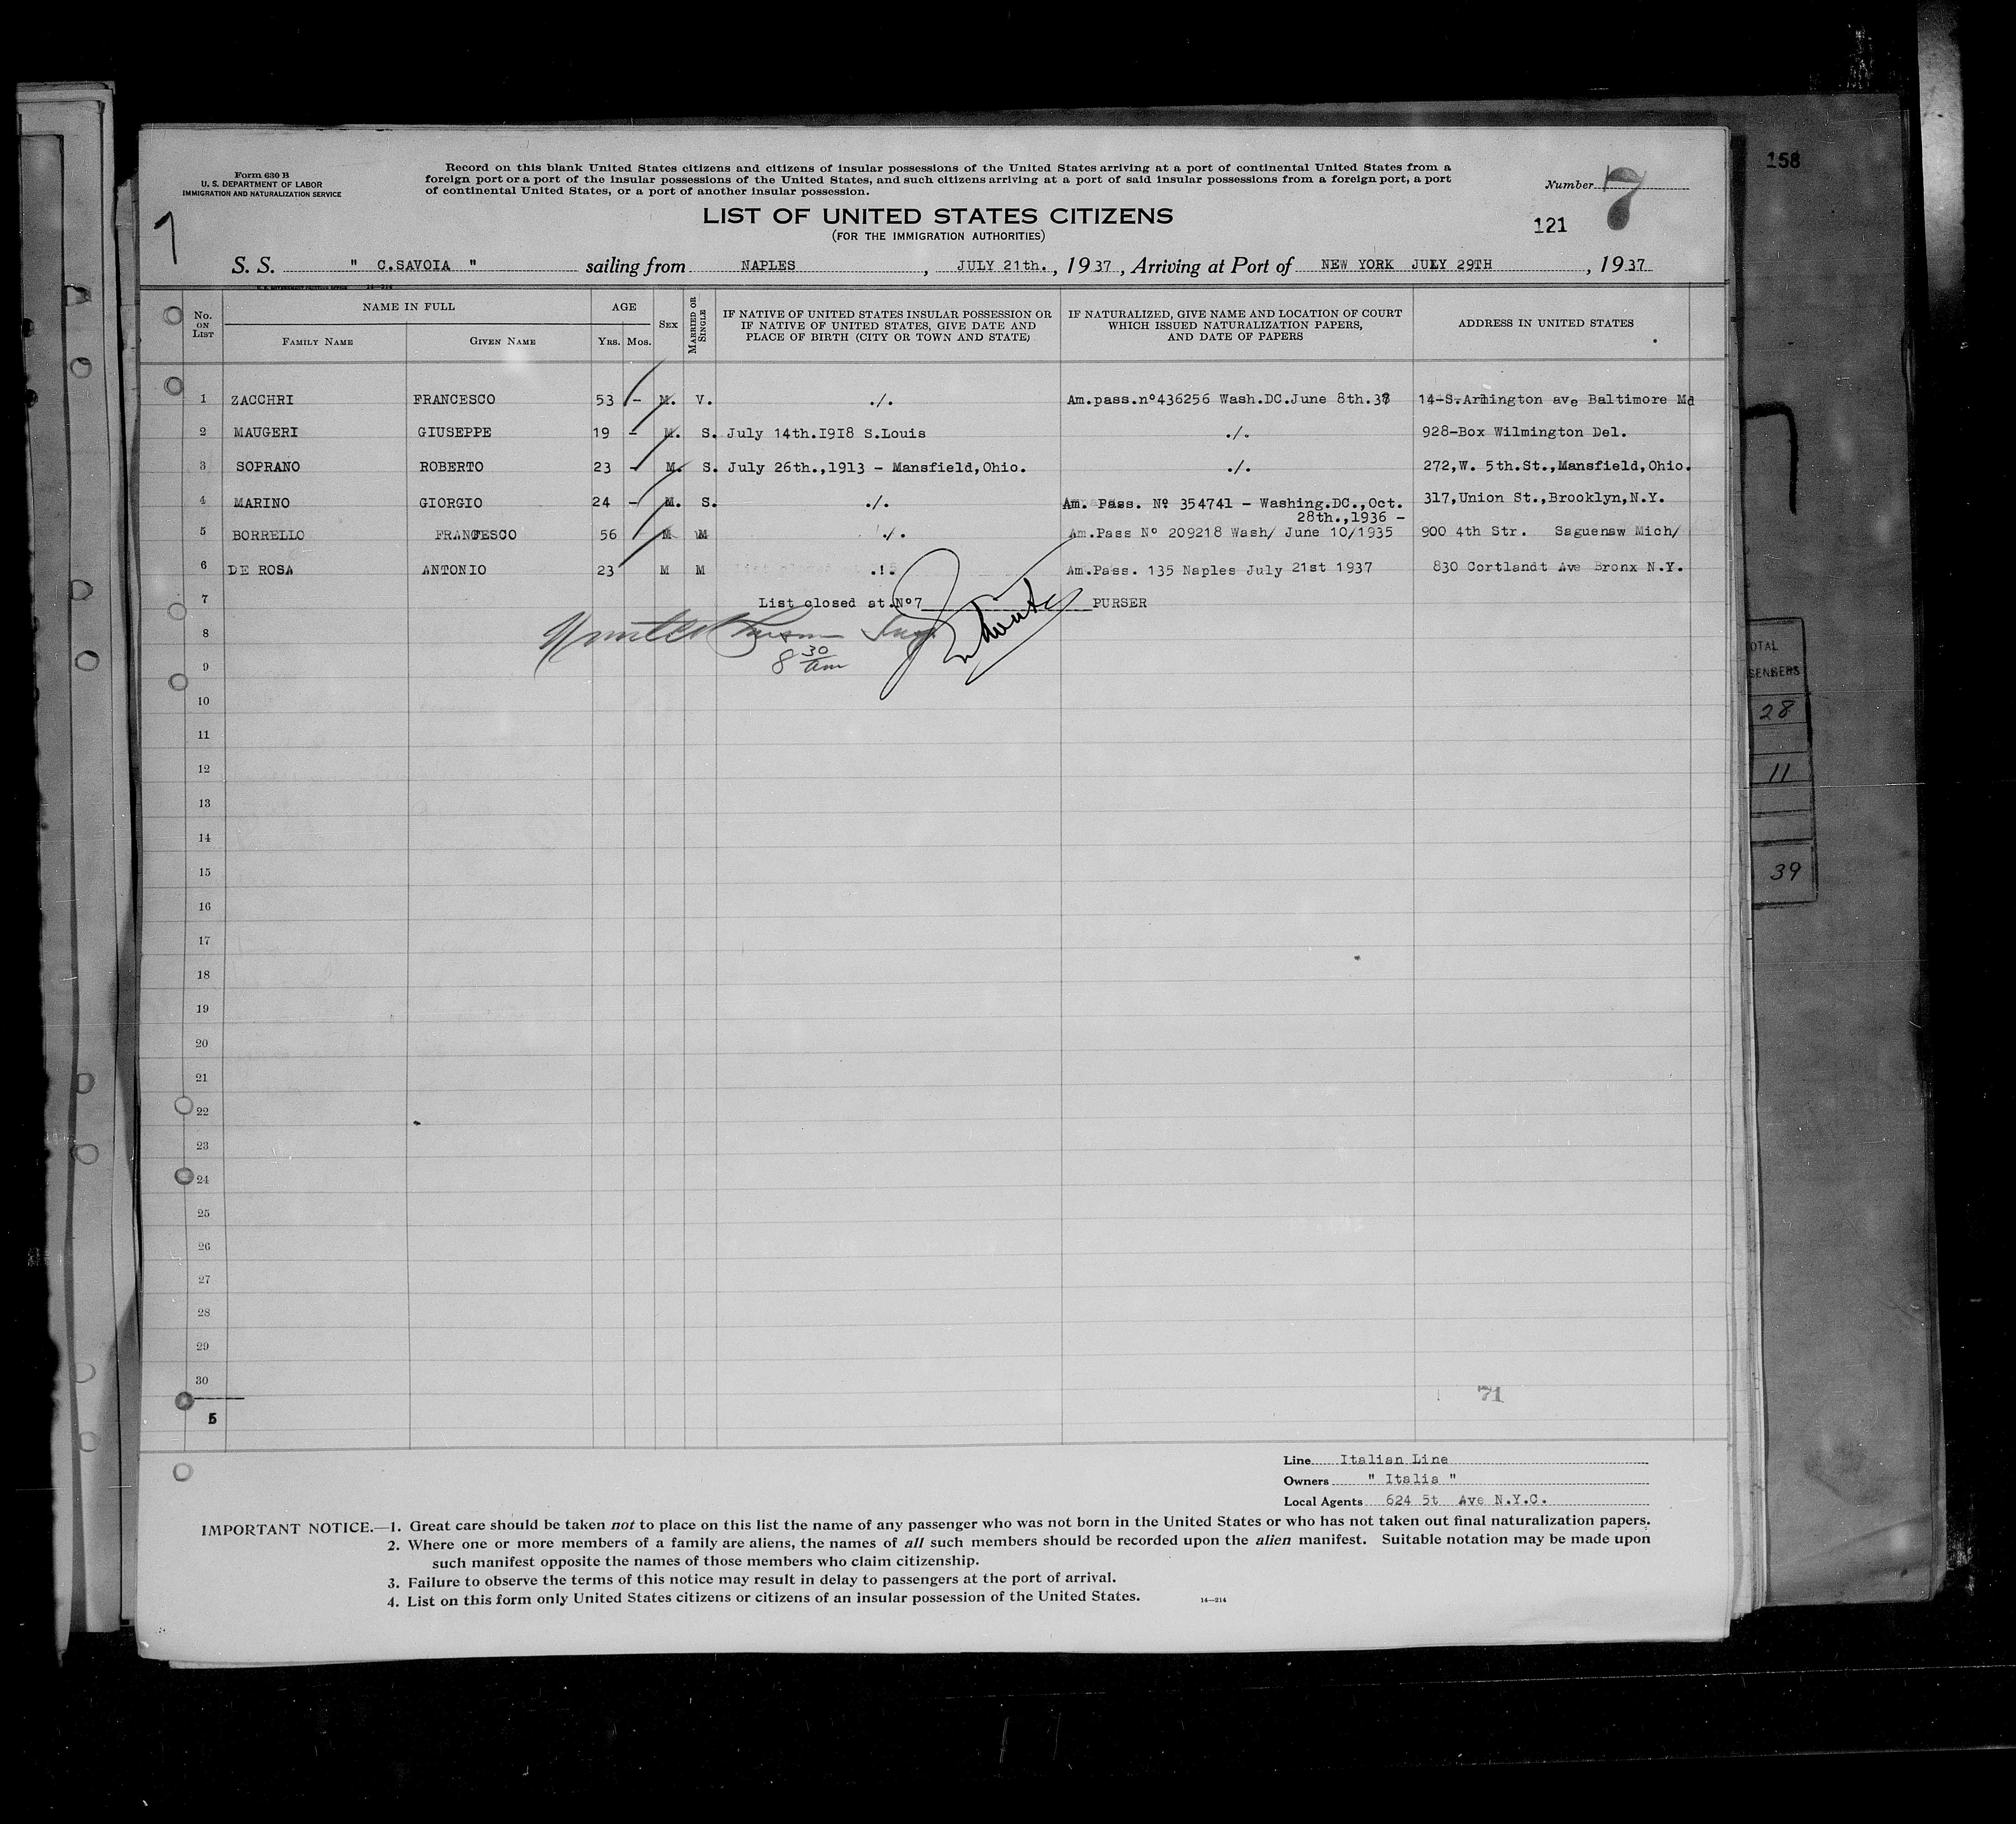 158
Form 630 B
U. S. DEPARTMENT OF LABOR
IMMIGRATION AND NATURALIZATION SERVICE
Record on this blank United States citizens and citizens of insular possessions of the United States arriving at a port of continental United States from a
foreign port or a port of the insular possessions of the United States, and such citizens arriving at a port of said insular possessions from a foreign port, a port
of continental United States, or a port of another insular possession.
Number 7
LIST OF UNITED STATES CITIZENS
(FOR THE IMMIGRATION AUTHORITIES)
121
S. S. " C.SAVOIA " sailing from NAPLES, JULY 21th., 1937, Arriving at Port of NEW YORK JULY 29TH, 1937
No. ON LIST NAME IN FULL FAMILY NAME GIVEN NAME AGE YRS. MOS. SEX MARRIED OR SINGLE IF NATIVE OF UNITED STATES INSULAR POSSESSION OR IF NATIVE OF UNITED STATES, GIVE DATE AND PLACE OF BIRTH (CITY OR TOWN AND STATE) IF NATURALIZED, GIVE NAME AND LOCATION OF COURT WHICH ISSUED NATURALIZATION PAPERS, AND DATE OF PAPERS ADDRESS IN UNITED STATES
1 ZACCHRI FRANCESCO 53 - M. V. ./. Am.pass.nº436256 Wash.DC.June 8th.37 14-S.Armington ave Baltimore Md
2 MAUGERI GIUSEPPE 19 - M. S. July 14th.I9I8 S.Louis ./. 928-Box Wilmington Del.
3 SOPRANO ROBERTO 23 - M. S. July 26th.,1913 - Mansfield,Ohio. ./. 272,W. 5th.St.,Mansfield,Ohio.
4 MARINO GIORGIO 24 - M. S. ./. Am. Pass. Nº 354741 - Washing.DC.,Oct. 28th.,1936 - 317,Union St.,Brooklyn,N.Y.
5 BORRELLO FRANCESCO 56 M M ./. Am.Pass Nº 209218 Wash/ June 10/1935 900 4th Str. Saguenaw Mich/
6 DE ROSA ANTONIO 23 M M ./. Am.Pass. 135 Naples July 21st 1937 830 Cortlandt Ave Bronx N.Y.
7 List closed at Nº7 PURSER
8
8 30 am
9
10
11
12
13
14
15
16
17
18
19
20
21
22
23
24
25
26
27
28
29
30
71
5
TOTAL
28
11
39
Line Italian Line
Owners " Italia "
Local Agents 624 5t Ave N.Y.C.
IMPORTANT NOTICE.—1. Great care should be taken not to place on this list the name of any passenger who was not born in the United States or who has not taken out final naturalization papers.
2. Where one or more members of a family are aliens, the names of all such members should be recorded upon the alien manifest. Suitable notation may be made upon
such manifest opposite the names of those members who claim citizenship.
3. Failure to observe the terms of this notice may result in delay to passengers at the port of arrival.
4. List on this form only United States citizens or citizens of an insular possession of the United States. 14—214